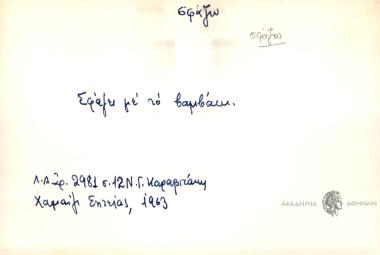 σφάζω
σφάζω
Σφάζει μέ τό βαμβάκι.
Λ.Α. ἀρ. 2981 σ. 12 Ν. Γ. Καραβιτάκη
Χαμαίζι Σητείας, 1963
ΑΚΑΔΗΜΙΑ ΑΘΗΝΩΝ